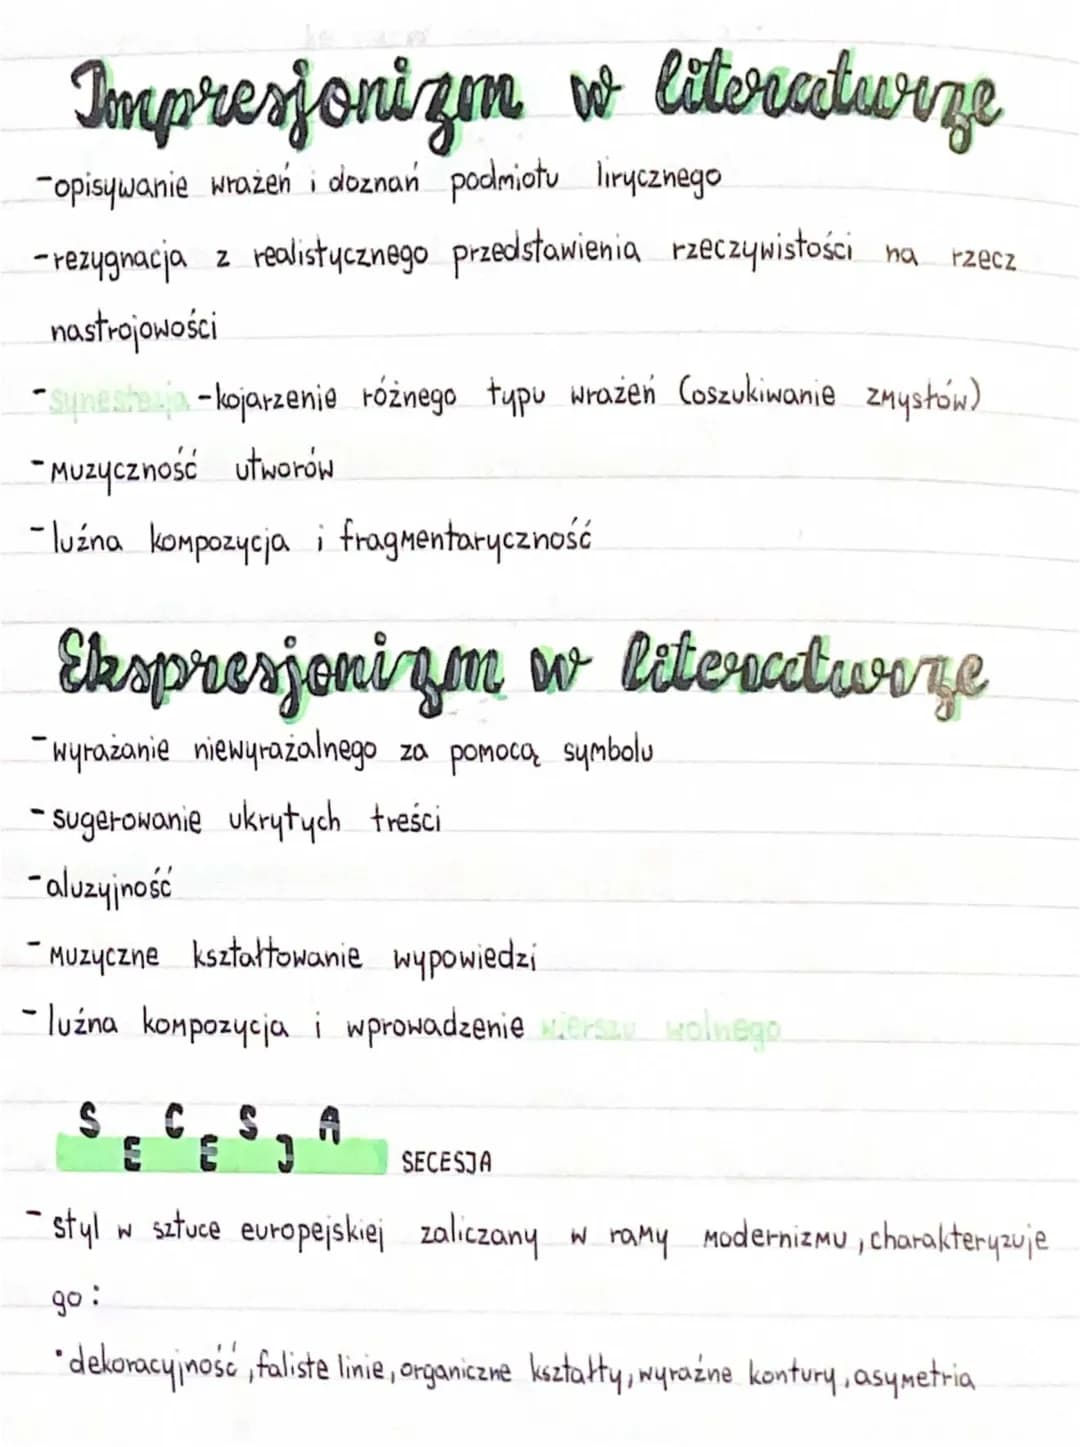 Impresjonizm w literaturze
-opisywanie wrażeń i doznań podmiotu lirycznego
-rezygnacja z realistycznego przedstawienia rzeczywistości na rzecz
nastrojowości
-synestezja -kojarzenie różnego typu wrażeń (oszukiwanie zmysłów)
-muzyczność utworów
-luźna kompozycja i fragmentaryczność
Ekspresjonizm w literaturze
-wyrażanie niewyrażalnego za pomocą symbolu
-sugerowanie ukrytych treści
-aluzyjność
-muzyczne kształtowanie wypowiedzi
-luźna kompozycja i wprowadzenie wierszu wolnego
SECESJA SECESJA
-styl w sztuce europejskiej zaliczany w ramy modernizmu, charakteryzuje
go:
•dekoracyjność, faliste linie, organiczne kształty, wyraźne kontury, asymetria